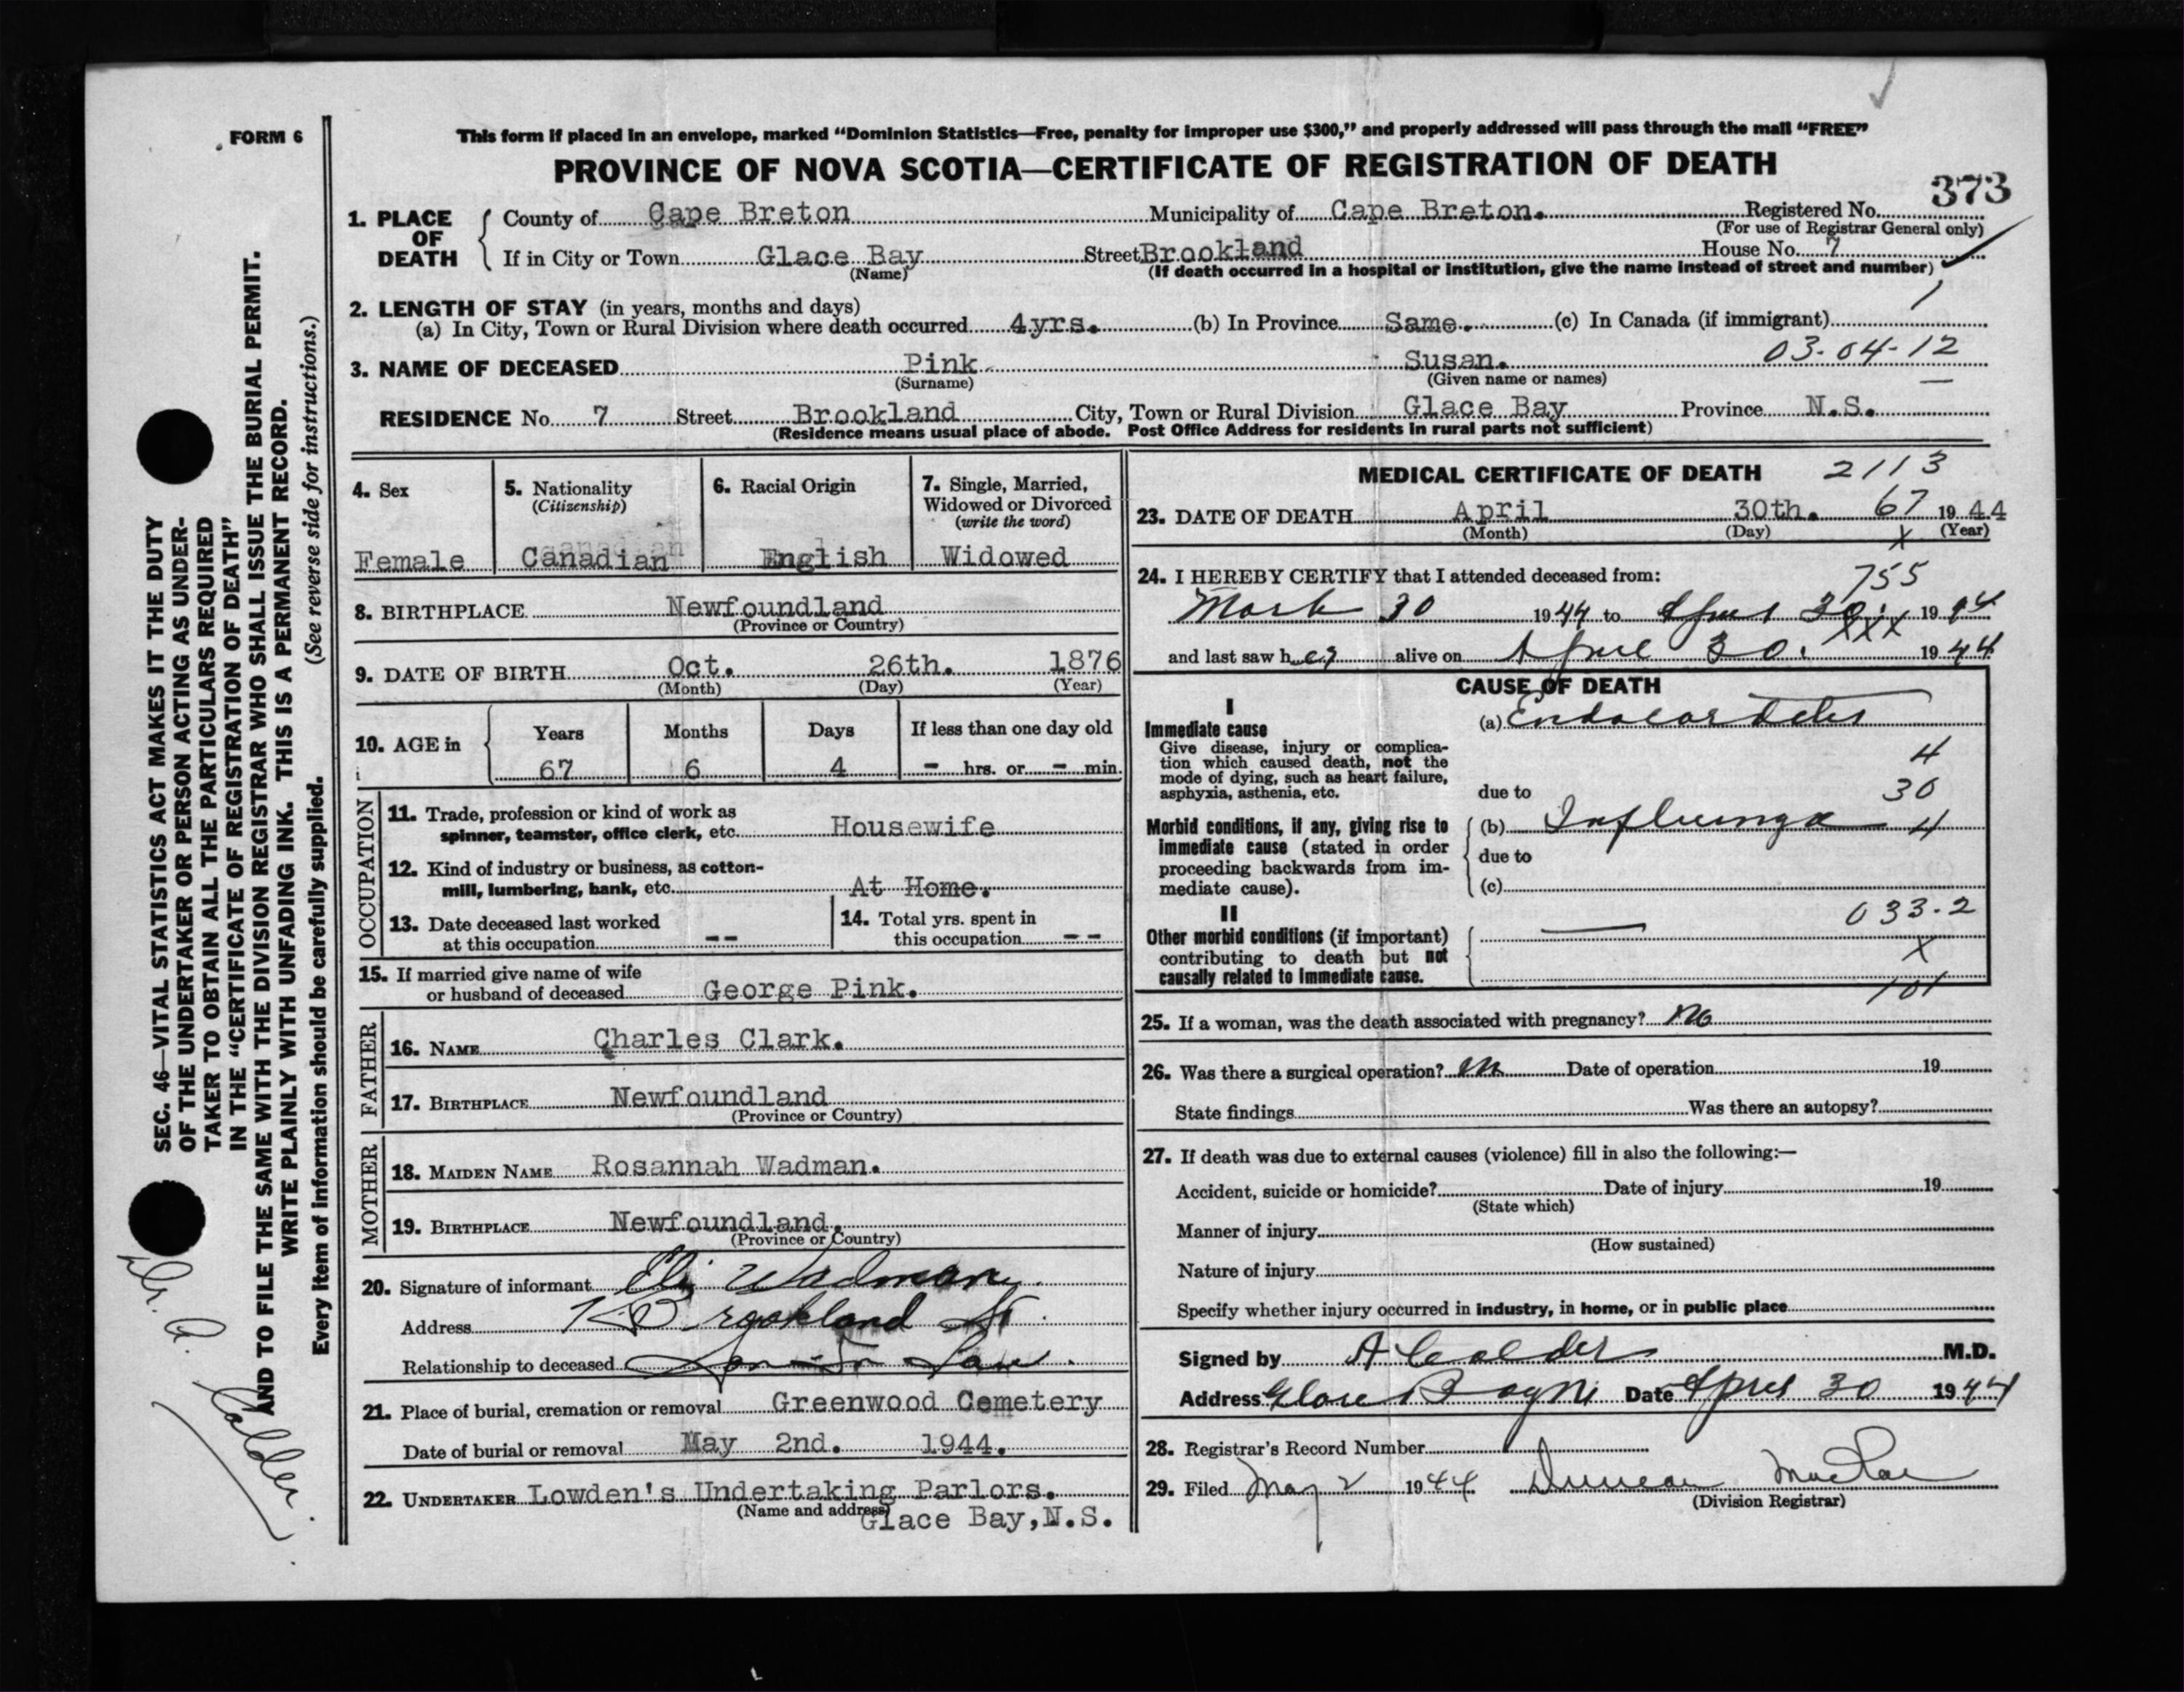 FORM 6
This form if placed in an envelope, marked "Dominion Statistics—Free, penalty for improper use $300," and properly addressed will pass through the mail "FREE"
PROVINCE OF NOVA SCOTIA—CERTIFICATE OF REGISTRATION OF DEATH
373
1. PLACE OF DEATH { County of Cape Breton Municipality of Cape Breton. Registered No.
(For use of Registrar General only)
If in City or Town Glace Bay Street Brookland House No. 7
(Name) (If death occurred in a hospital or institution, give the name instead of street and number)
2. LENGTH OF STAY (in years, months and days)
(a) In City, Town or Rural Division where death occurred 4 yrs. (b) In Province Same. (c) In Canada (if immigrant)
03-04-12
3. NAME OF DECEASED Pink Susan.
(Surname) (Given name or names)
RESIDENCE No. 7 Street Brookland City, Town or Rural Division Glace Bay Province N.S.
(Residence means usual place of abode. Post Office Address for residents in rural parts not sufficient)
4. Sex
Female
5. Nationality
(Citizenship)
Canadian
6. Racial Origin
English
7. Single, Married,
Widowed or Divorced
(write the word)
Widowed
8. BIRTHPLACE Newfoundland
(Province or Country)
9. DATE OF BIRTH Oct. 26th. 1876
(Month) (Day) (Year)
10. AGE in { Years Months Days If less than one day old
67 6 4 - hrs. or - min.
OCCUPATION
11. Trade, profession or kind of work as
spinner, teamster, office clerk, etc. Housewife
12. Kind of industry or business, as cotton-
mill, lumbering, bank, etc. At Home.
13. Date deceased last worked
at this occupation --
14. Total yrs. spent in
this occupation --
15. If married give name of wife
or husband of deceased George Pink.
FATHER
16. NAME Charles Clark.
17. BIRTHPLACE Newfoundland
(Province or Country)
MOTHER
18. MAIDEN NAME Rosannah Wadman.
19. BIRTHPLACE Newfoundland.
(Province or Country)
20. Signature of informant Eli Wadman
Address 7 Brookland St.
Relationship to deceased Son-in-Law.
21. Place of burial, cremation or removal Greenwood Cemetery
Date of burial or removal May 2nd. 1944.
22. UNDERTAKER Lowden's Undertaking Parlors.
(Name and address)
Glace Bay, N.S.
MEDICAL CERTIFICATE OF DEATH 2113
23. DATE OF DEATH April 30th. 67 1944
(Month) (Day) (Year)
24. I HEREBY CERTIFY that I attended deceased from:
755
30 1944 to April 30. 1944
xxx
and last saw her alive on April 30. 1944
CAUSE OF DEATH
I
Immediate cause
Give disease, injury or complica-
tion which caused death, not the
mode of dying, such as heart failure,
asphyxia, asthenia, etc.
(a) Endocarditis
4
due to 30
Morbid conditions, if any, giving rise to
immediate cause (stated in order
proceeding backwards from im-
mediate cause).
(b) Influenza 4
due to
(c)
II
Other morbid conditions (if important)
contributing to death but not
causally related to immediate cause.
033-2
X
101
25. If a woman, was the death associated with pregnancy? No
26. Was there a surgical operation? No Date of operation 19
State findings Was there an autopsy?
27. If death was due to external causes (violence) fill in also the following:—
Accident, suicide or homicide? Date of injury 19
(State which)
Manner of injury
(How sustained)
Nature of injury
Specify whether injury occurred in industry, in home, or in public place
Signed by A Calder M.D.
Address Glace Bay NS Date April 30 1944
28. Registrar's Record Number
29. Filed May 2 1944 Duncan MacRae
(Division Registrar)
SEC. 46—VITAL STATISTICS ACT MAKES IT THE DUTY
OF THE UNDERTAKER OR PERSON ACTING AS UNDER-
TAKER TO OBTAIN ALL THE PARTICULARS REQUIRED
IN THE "CERTIFICATE OF REGISTRATION OF DEATH"
AND TO FILE THE SAME WITH THE DIVISION REGISTRAR WHO SHALL ISSUE THE BURIAL PERMIT.
WRITE PLAINLY WITH UNFADING INK. THIS IS A PERMANENT RECORD.
(See reverse side for instructions.)
Every item of information should be carefully supplied.
Dr. A. Calder.